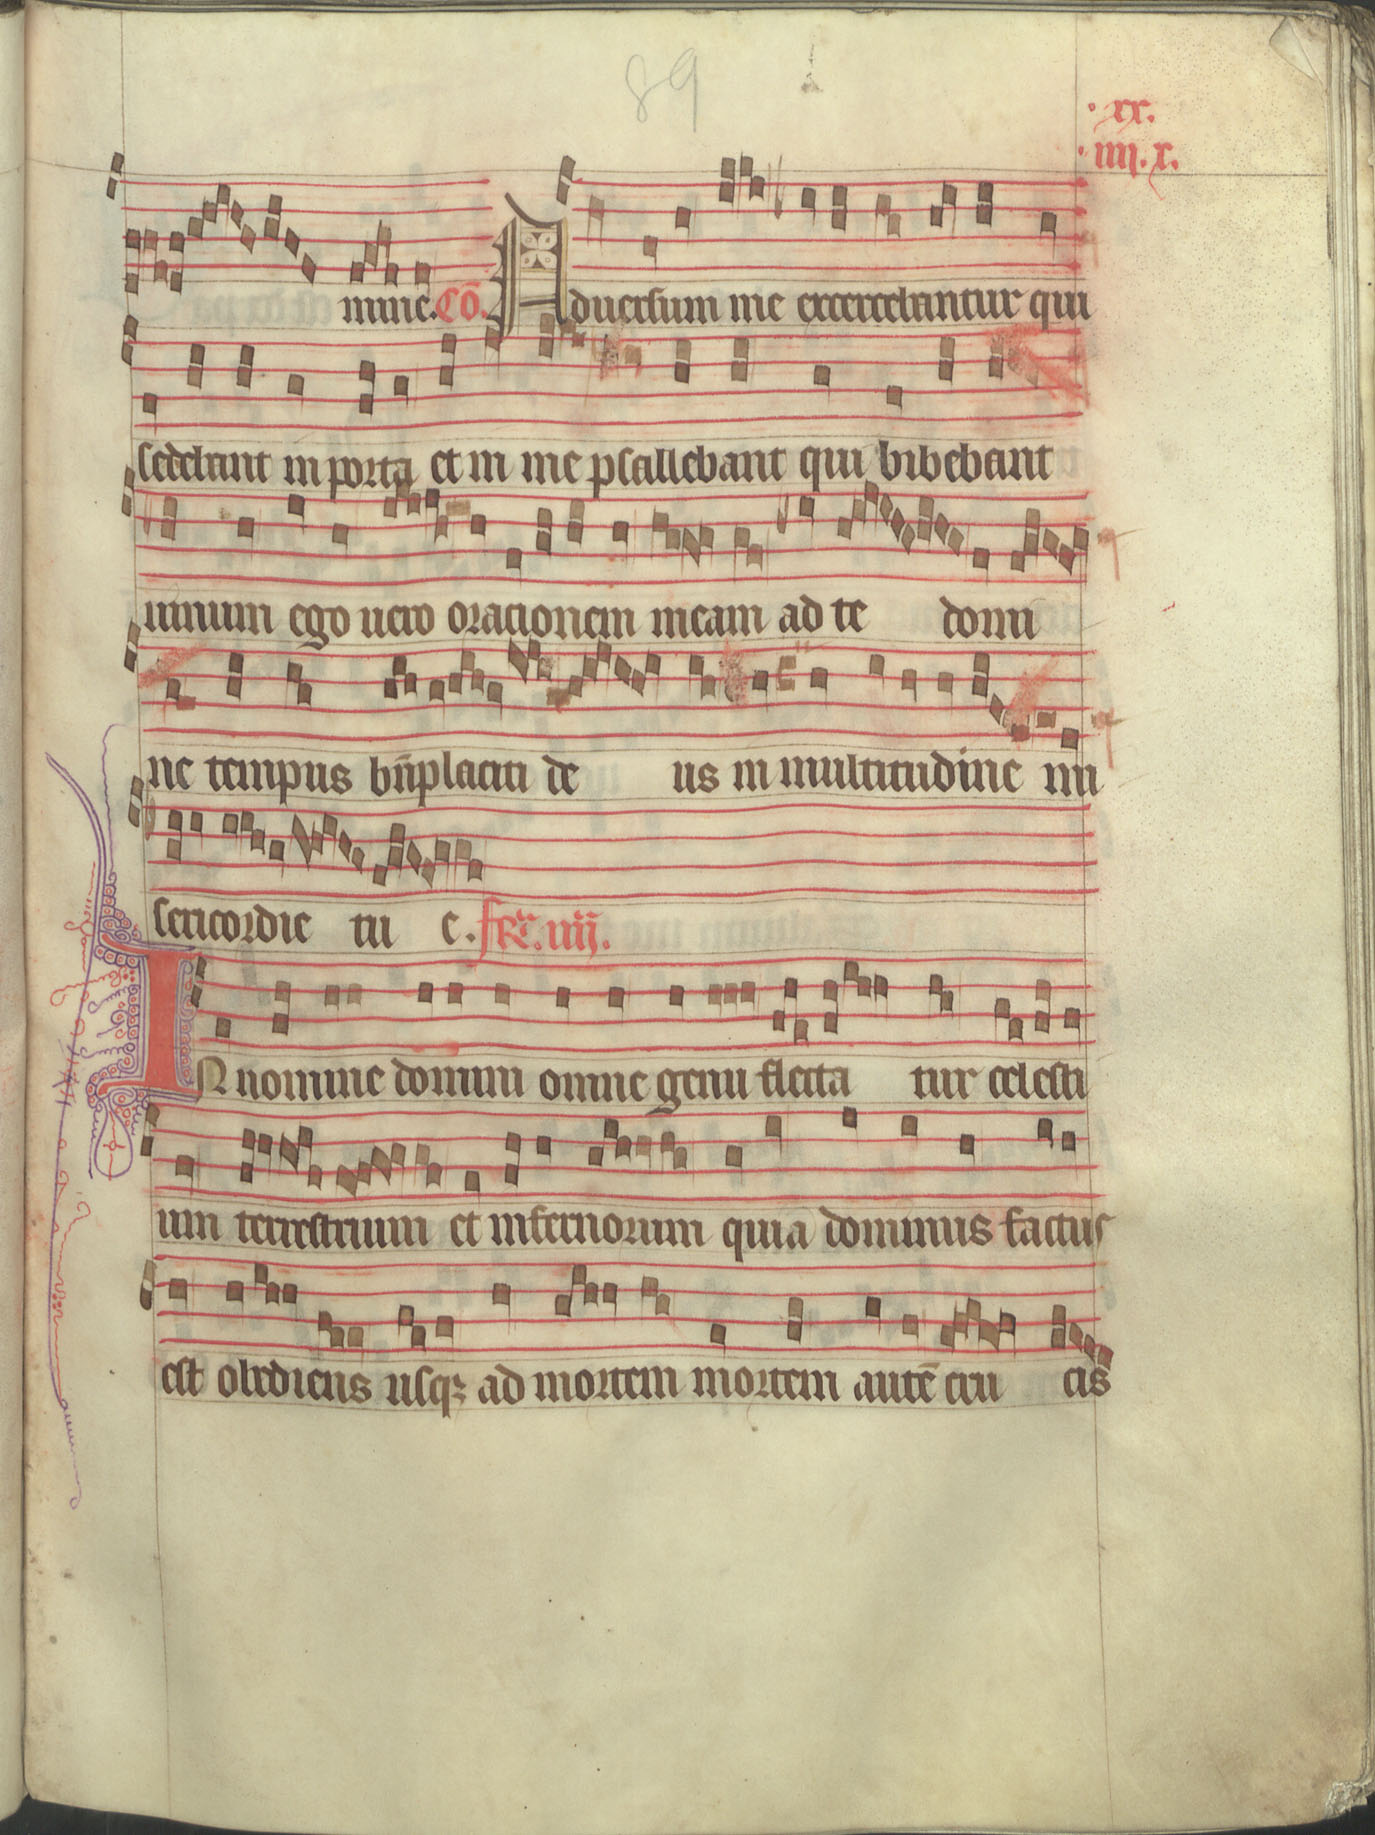 89
·xx.
·iiii.x.
mine. Cō. Aduersum me exercebantur qui
sedebant in porta et in me psallebant qui bibebant
uinum ego uero orationem meam ad te domi
ne tempus bn̄placiti de us in multitudine mi
sericordie tu e. fr̄e. iiij.
IN nomine domini omne genu flecta tur celesti
um terrestrium et infernorum quia dominus factus
est obediens usqꝫ ad mortem mortem autē cru cis